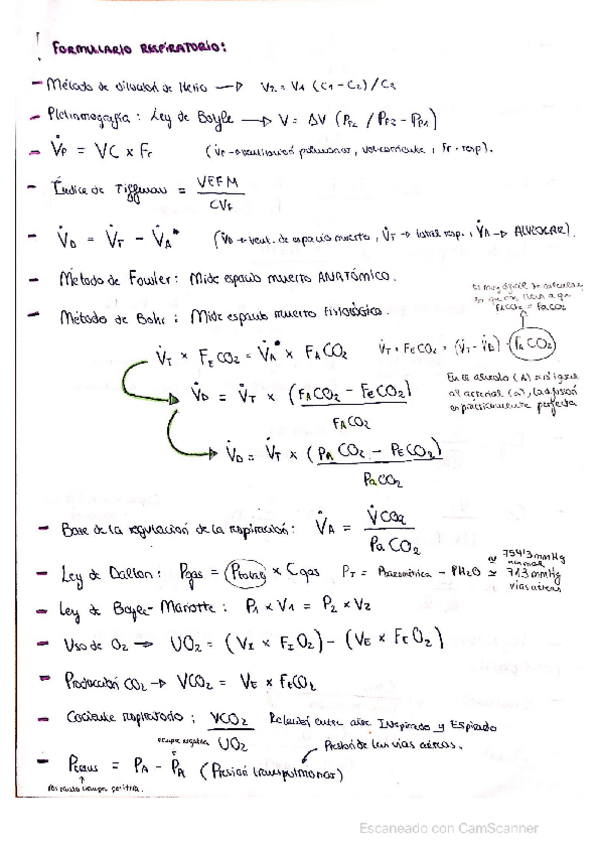 ! FORMULARIO RESPIRATORIO:
- Método de dilución de Helio → V2 = V1 (C1 - C2) / C2
- Pletismografía: Ley de Boyle → V = ΔV (PP2 / PP2 - PP1)
- V̇P = VC × Fr (V̇P → ventilación pulmonar, vol. corriente, Fr. resp).
- Índice de Tiffenau = VEFM / CVF
- V̇D = V̇T - V̇A* (V̇D → vent. de espacio muerto, V̇T → total resp., V̇A → ALVEOLAR).
- Método de Fowler: Mide espacio muerto ANATÓMICO.
- Método de Bohr: Mide espacio muerto FISIOLÓGICO.
Es muy difícil de calcular,
FACO2 = FaCO2
V̇T × FECO2 = V̇A* × FACO2
V̇T · FECO2 = (V̇T - V̇D) · FACO2
→ V̇D = V̇T × (FACO2 - FECO2) / FACO2
En el alveolo (A) es igual
al arterial (a), la difusión
es prácticamente perfecta
→ V̇D = V̇T × (PACO2 - PECO2) / PaCO2
- Base de la regulación de la respiración: V̇A = V̇CO2 / PaCO2
- Ley de Dalton: Pgas = Ptotal × Cgas PT = Pbarométrica - PH2O ≃ 713 mmHg
vías aéreas
- Ley de Boyle-Mariotte: P1 × V1 = P2 × V2
- Uso de O2 → UO2 = (VI × FIO2) - (VE × FEO2)
- Producción CO2 → VCO2 = VE × FECO2
- Cociente respiratorio: VCO2 / UO2 Relación entre aire INspirado y ESpirado
Presión de las vías aéreas.
- Ptrans = PA - (Presión transpulmonar)
Escaneado con CamScanner